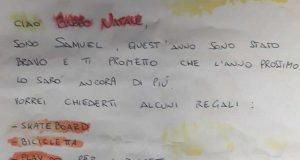 CIAO BABBO NATALE,
SONO SAMUEL, QUEST'ANNO SONO STATO
BRAVO E TI PROMETTO CHE L'ANNO PROSSIMO
LO SARO' ANCORA DI PIÙ
VORREI CHIEDERTI ALCUNI REGALI:
- SKATEBOARD
- BICICLETTA